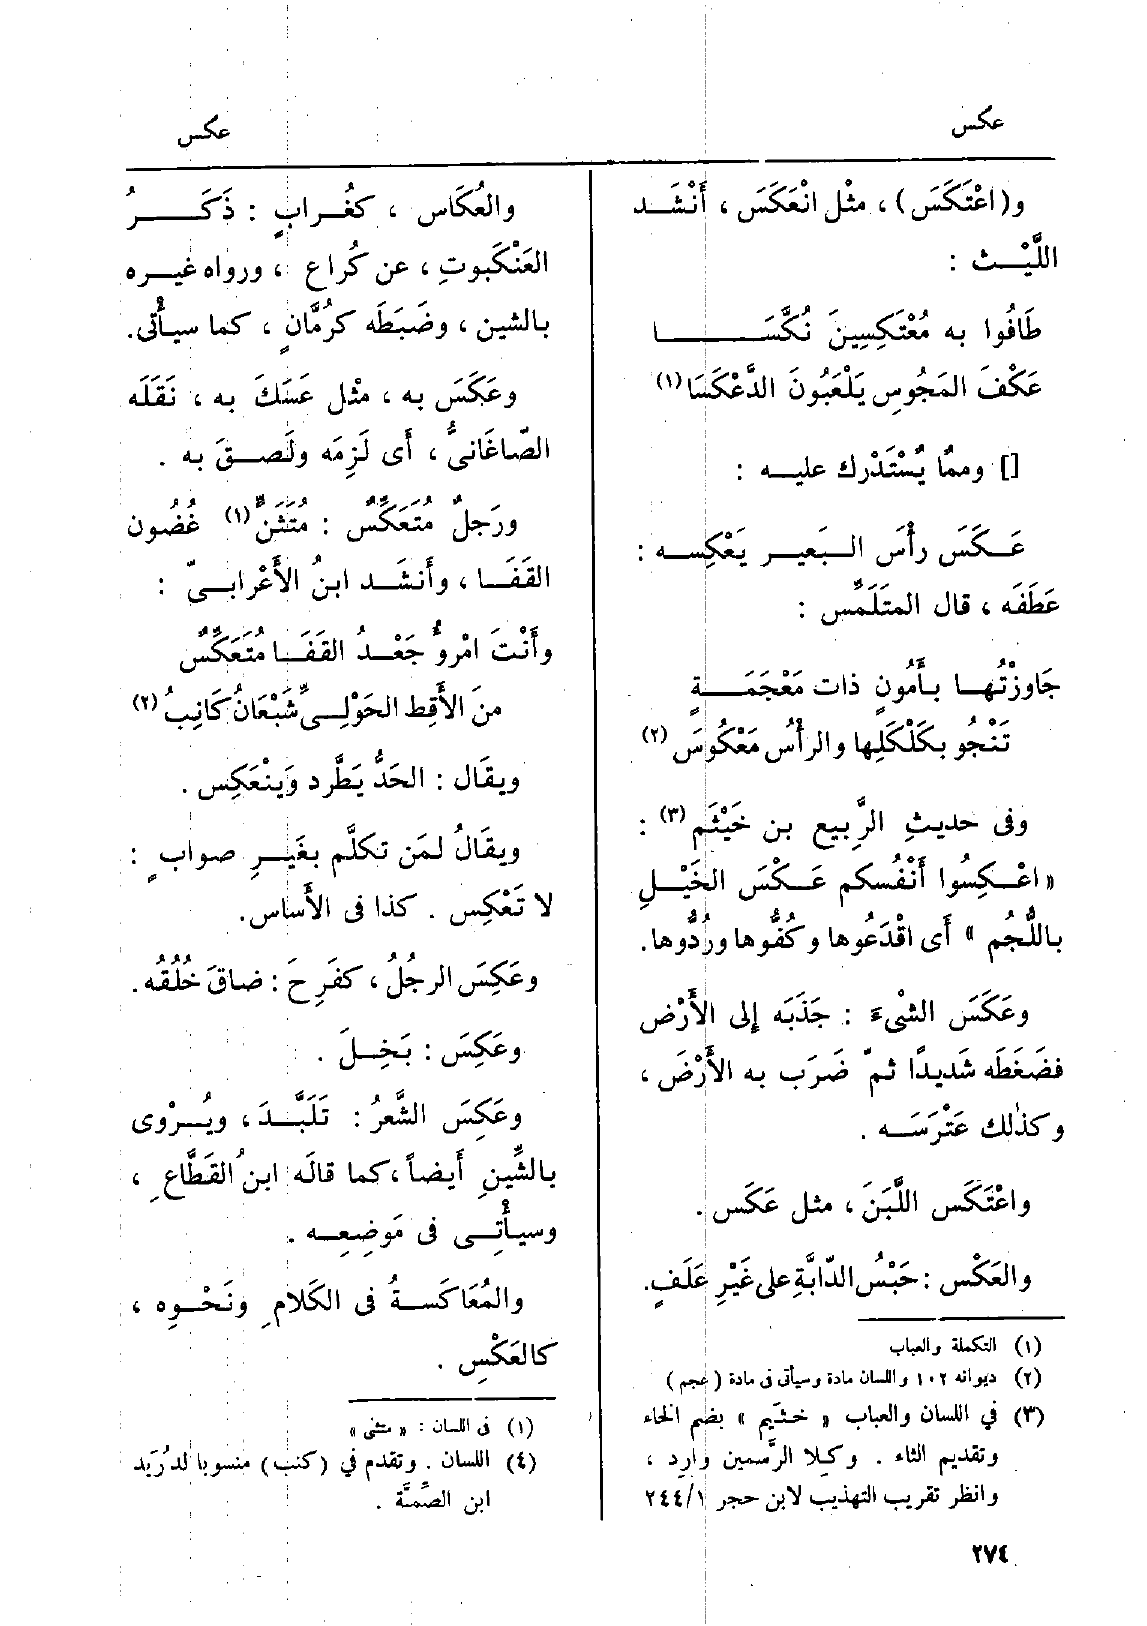 عكس
عكس
و(اعْتَكَسَ)، مثْل انْعَكَسَ، أَنْشَد
اللَّيْث :
طَافُوا به مُعْتَكِسِينَ نُكَّسَا
عَكْفَ المَجُوسِ يَلْعَبُونَ الدَّعْكَسَا (١)
[] وممّا يُسْتَدْرك عليه :
عَكَسَ رأْسَ البَعير يَعْكِسه :
عَطَفَه ، قال المتَلَمِّس :
جَاوزْتُها بأَمُونٍ ذات مَعْجَمَةٍ
تَنْجُو بكَلْكَلِها والرأْسُ مَعْكُوسُ (٢)
وفى حديثِ الرَّبِيع بن خَيْثَم (٣) :
«اعْكِسُوا أَنْفُسكم عَكْسَ الخَيْلِ
باللُّجُم » أَى اقْدَعُوها وكُفُّوها ورُدُّوها.
وعَكَسَ الشْىءَ : جَذَبَه إلى الأَرْض
فضَغَطَه شَديدًا ثمّ ضَرَب به الأَرْضَ ،
وكذٰلك عَتْرَسَه .
واعْتَكَس اللَّبَنَ ، مثل عَكَس .
والعَكْس : حَبْسُ الدّابَّة على غَيْرِ عَلَفٍ.
(١) التكملة والعباب
(٢) ديوانه ١٠٢ واللسان مادة وسيأتى فى مادة (عجم)
(٣) في اللسان والعباب « خُثَيم » بضم الخاء
وتقديم الثاء . وكلا الرَّسمين وارد ،
وانظر تقريب التهذيب لابن حجر ٢٤٤/١
والعُكَاس ، كغُرابٍ : ذَكَرُ
العَنْكَبوتِ ، عن كُراع ، ورواه غيره
بالشين ، وضَبَطَه كرُمَّانٍ ، كما سيأْتى.
وعَكَسَ به ، مثْل عَسَكَ به ، نَقَلَه
الصّاغَانىُّ ، أَى لَزِمَه ولَصِقَ به .
ورَجلٌ مُتَعَكِّسٌ : مُتَثَنِّ (١) غُضُون
القَفَا ، وأَنشَد ابنُ الأَعْرابىّ :
وأَنْتَ امْرؤٌ جَعْدُ القَفَا مُتَعَكِّسٌ
منَ الأَقِط الحَوْلِىِّ شَبْعَانُ كَانِبُ (٢)
ويقَال : الحَدُّ يَطَّرد وَيَنْعَكِس .
ويقَالُ لمَن تكلَّم بغَيرِ صوابٍ :
لا تَعْكِس . كذا فى الأَساس.
وعَكِسَ الرجُلُ ، كفَرِحَ : ضاقَ خُلُقُه.
وعَكِسَ : بَخِلَ .
وعَكِسَ الشَّعرُ : تَلَبَّدَ ، ويُرْوى
بالشِّينِ أَيضاً ، كما قالَه ابنُ القَطَّاعِ ،
وسيأْتِى فى مَوضِعِه .
والمُعَاكَسةُ فى الكَلامِ ونَحْوِه ،
كالعَكْسِ .
(١) فى اللسان : « مثنى »
(٤) اللسان . وتقدم في (كنب) منسوبا لدُرَيد
ابن الصِّمَّة .
٢٧٤